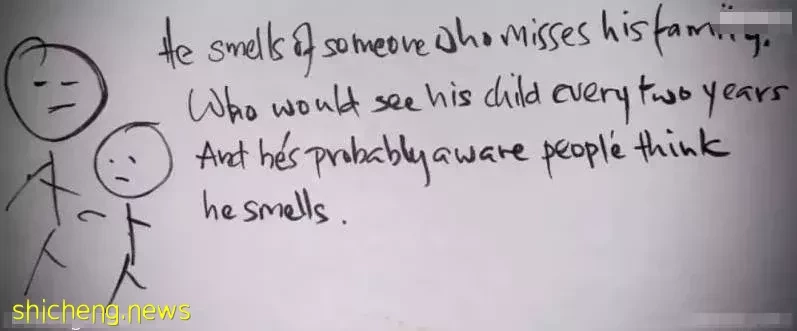 He smells of someone who misses his family.
Who would see his child every two years
And he's probably aware people think
he smells.
shicheng.news